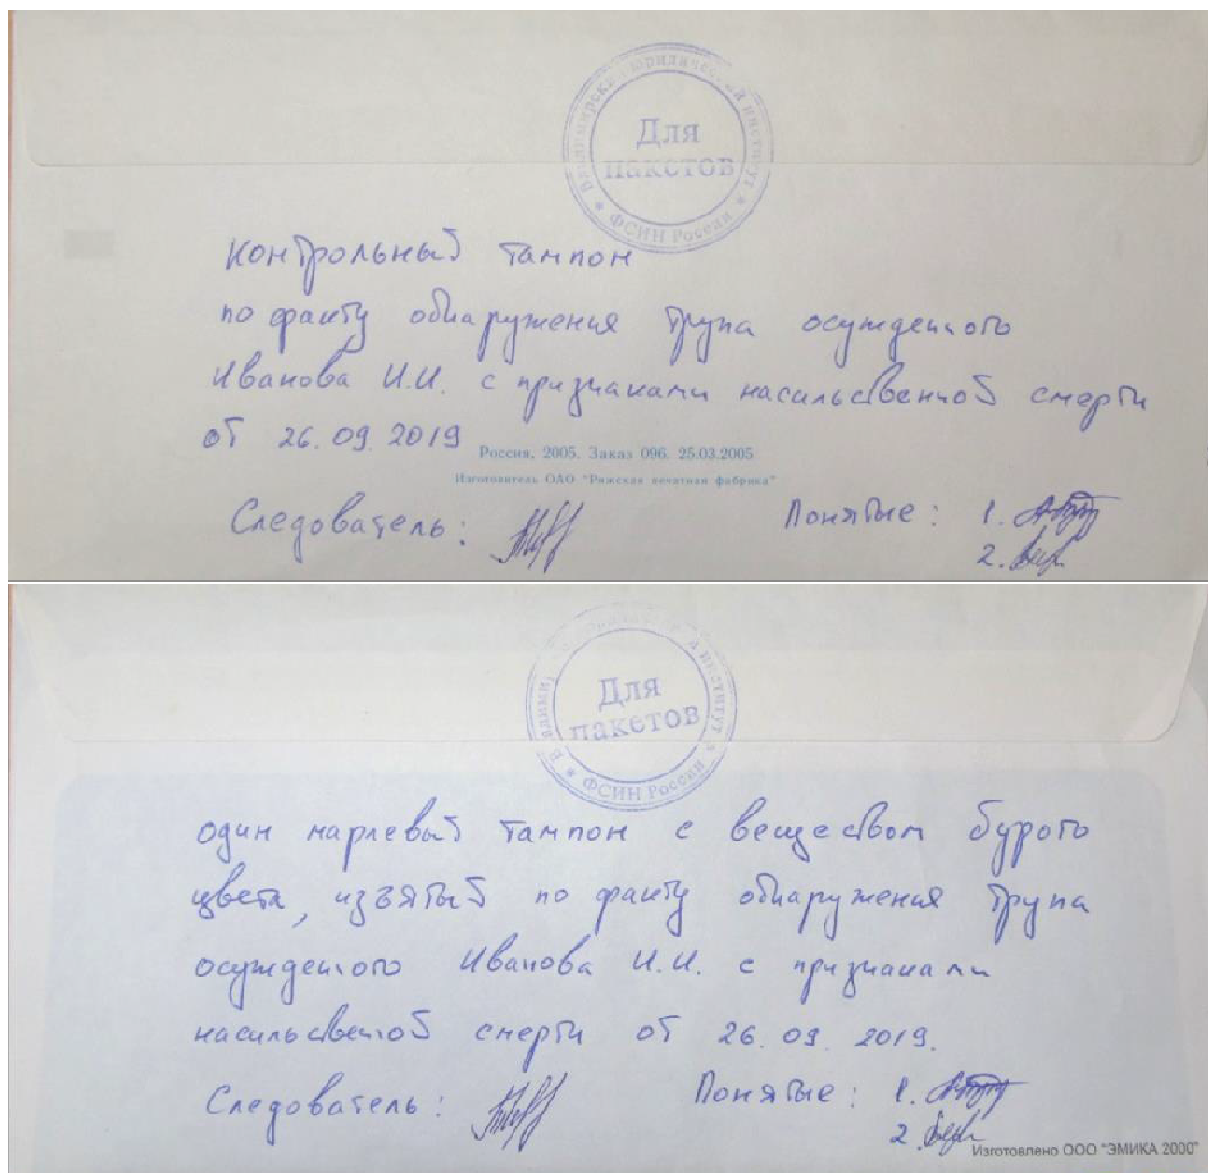 Владимирский юридический институт
ФСИН России
Для
пакетов
Контрольный тампон
по факту обнаружения трупа осужденного
Иванова И.И. с признаками насильственной смерти
от 26.09.2019
Россия, 2005. Заказ 096. 25.03.2005
Изготовитель ОАО "Ряжская печатная фабрика"
Следователь:
Понятые: 1.
2.
Владимирский юридический институт
ФСИН России
Для
пакетов
один марлевый тампон с веществом бурого
цвета, изъятый по факту обнаружения трупа
осужденного Иванова И.И. с признаками
насильственной смерти от 26.09.2019.
Следователь:
Понятые: 1.
2.
Изготовлено ООО "ЭМИКА 2000"